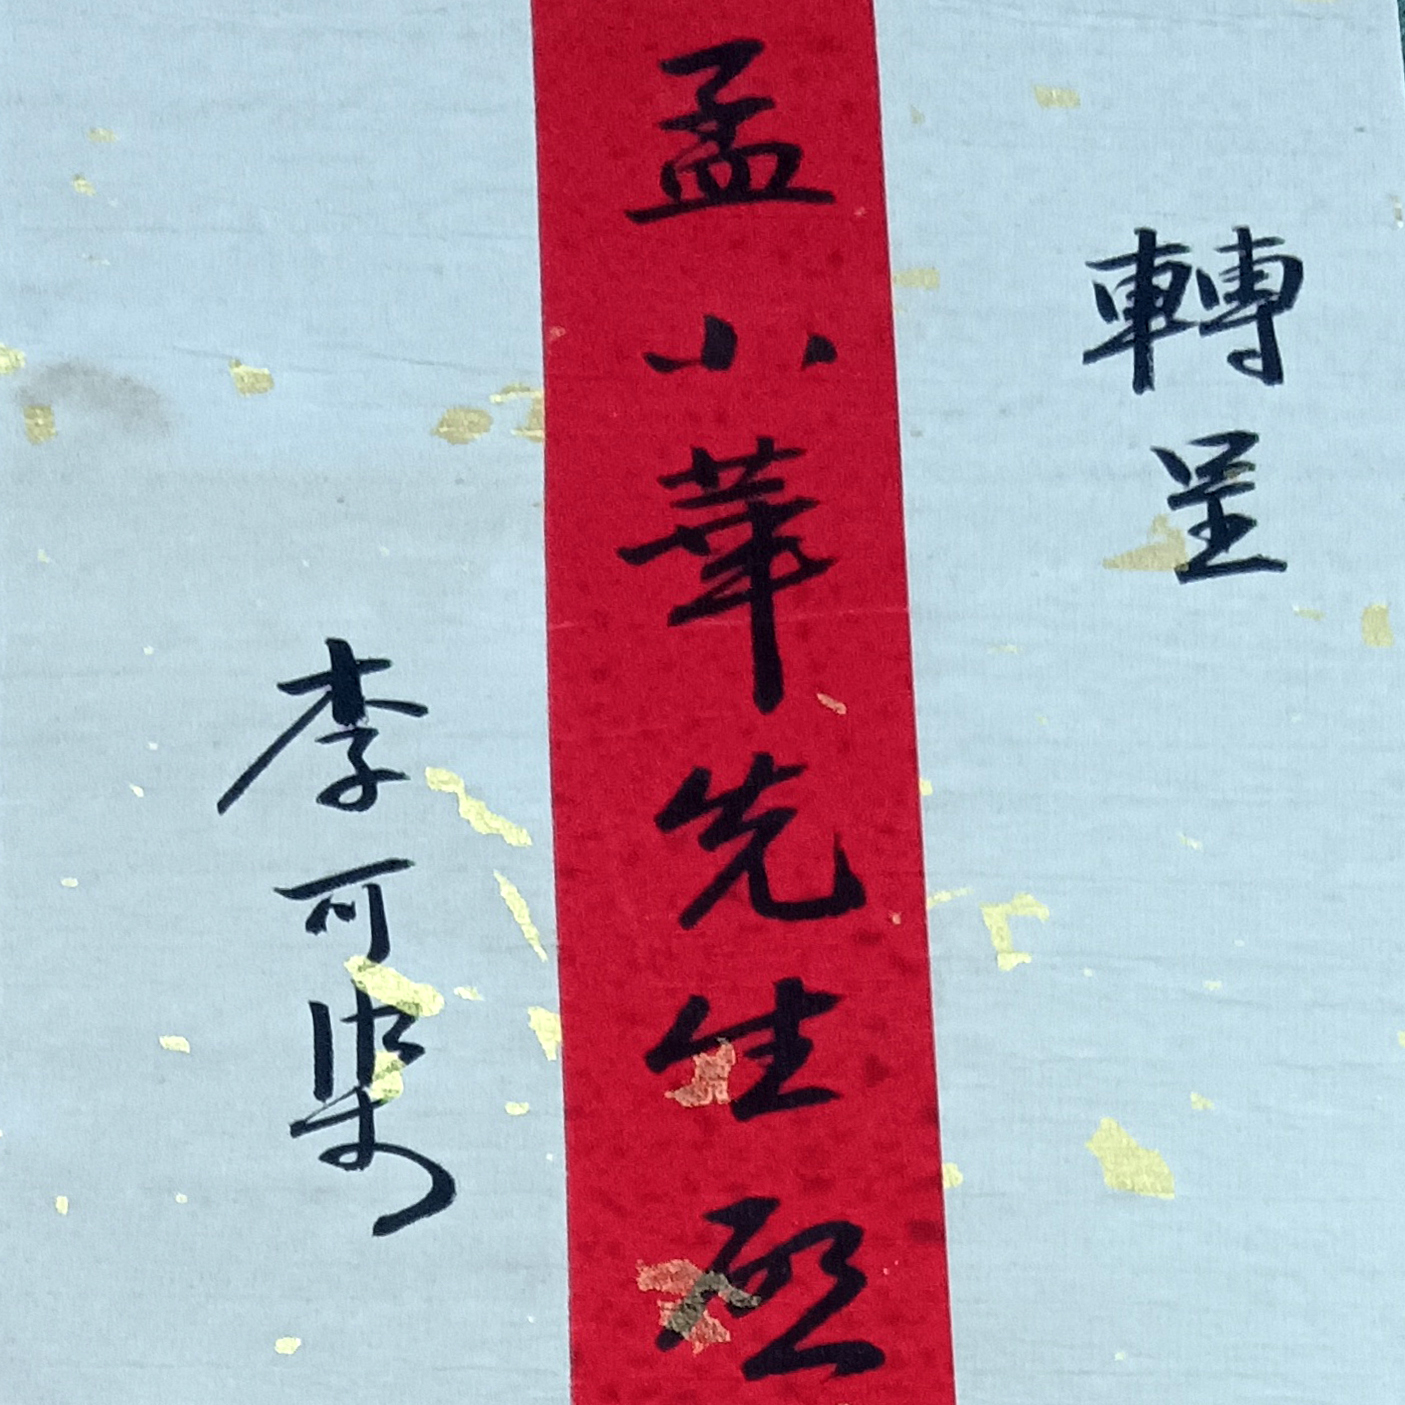 轉呈
孟小華先生啟
李可染